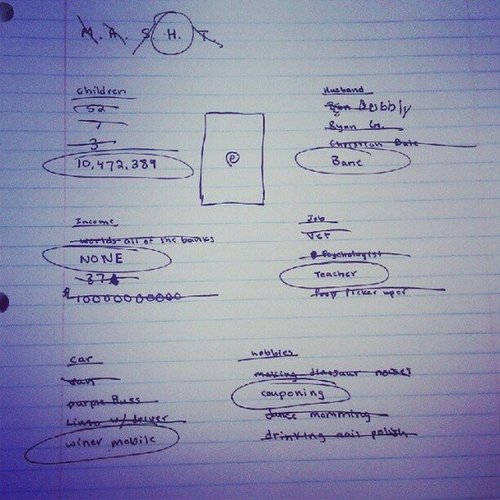 M. A. S. H. T.
Children
52
7
3
10,472,389
Husband
Ryan Bubbly
Ryan G.
Christian Bale
Bane
e
Income
worlds all of the banks
NONE
37¢
$10000000000
Job
Vet
Psychologist
Teacher
Poop Picker uper
car
van
purple Buss
Limo w/ driver
winer mobile
hobbies
making dinosaur noises
couponing
dance momming
drinking nail polish